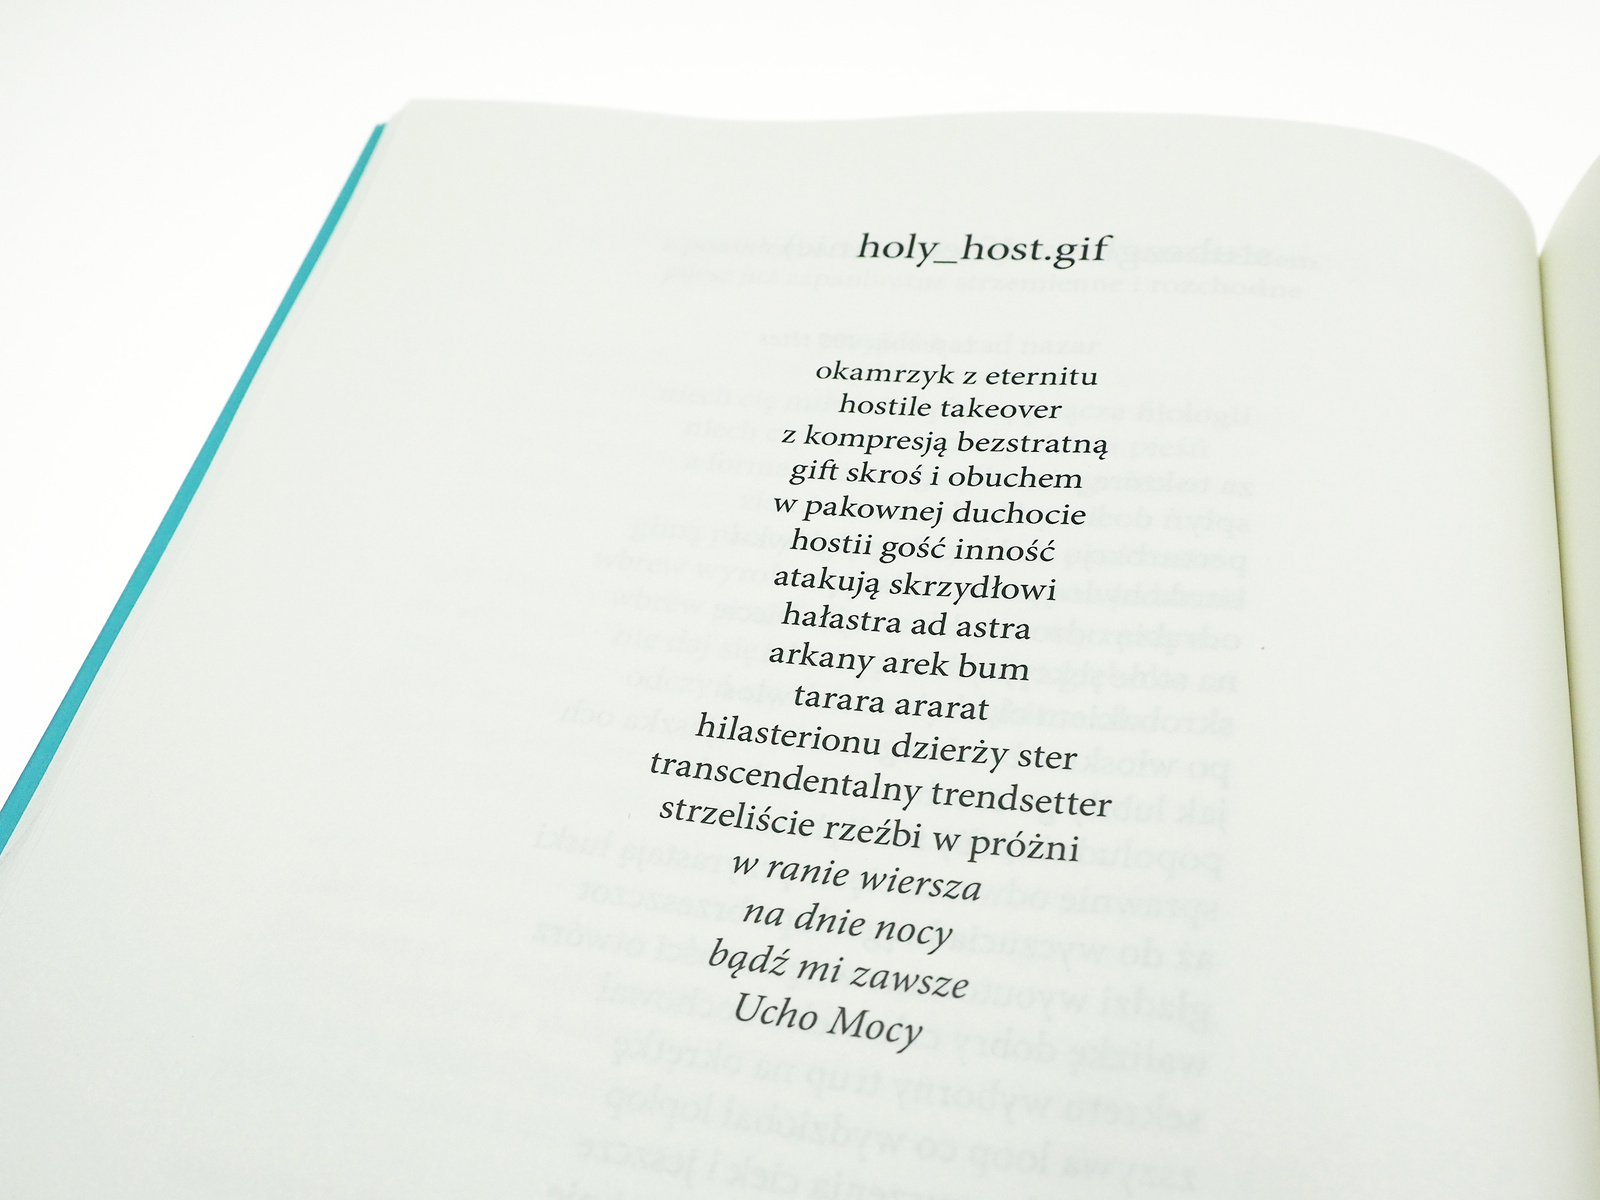 holy_host.gif
okamrzyk z eternitu
hostile takeover
z kompresją bezstratną
gift skroś i obuchem
w pakownej duchocie
hostii gość inność
atakują skrzydłowi
hałastra ad astra
arkany arek bum
tarara ararat
hilasterionu dzierży ster
transcendentalny trendsetter
strzeliście rzeźbi w próżni
w ranie wiersza
na dnie nocy
bądź mi zawsze
Ucho Mocy